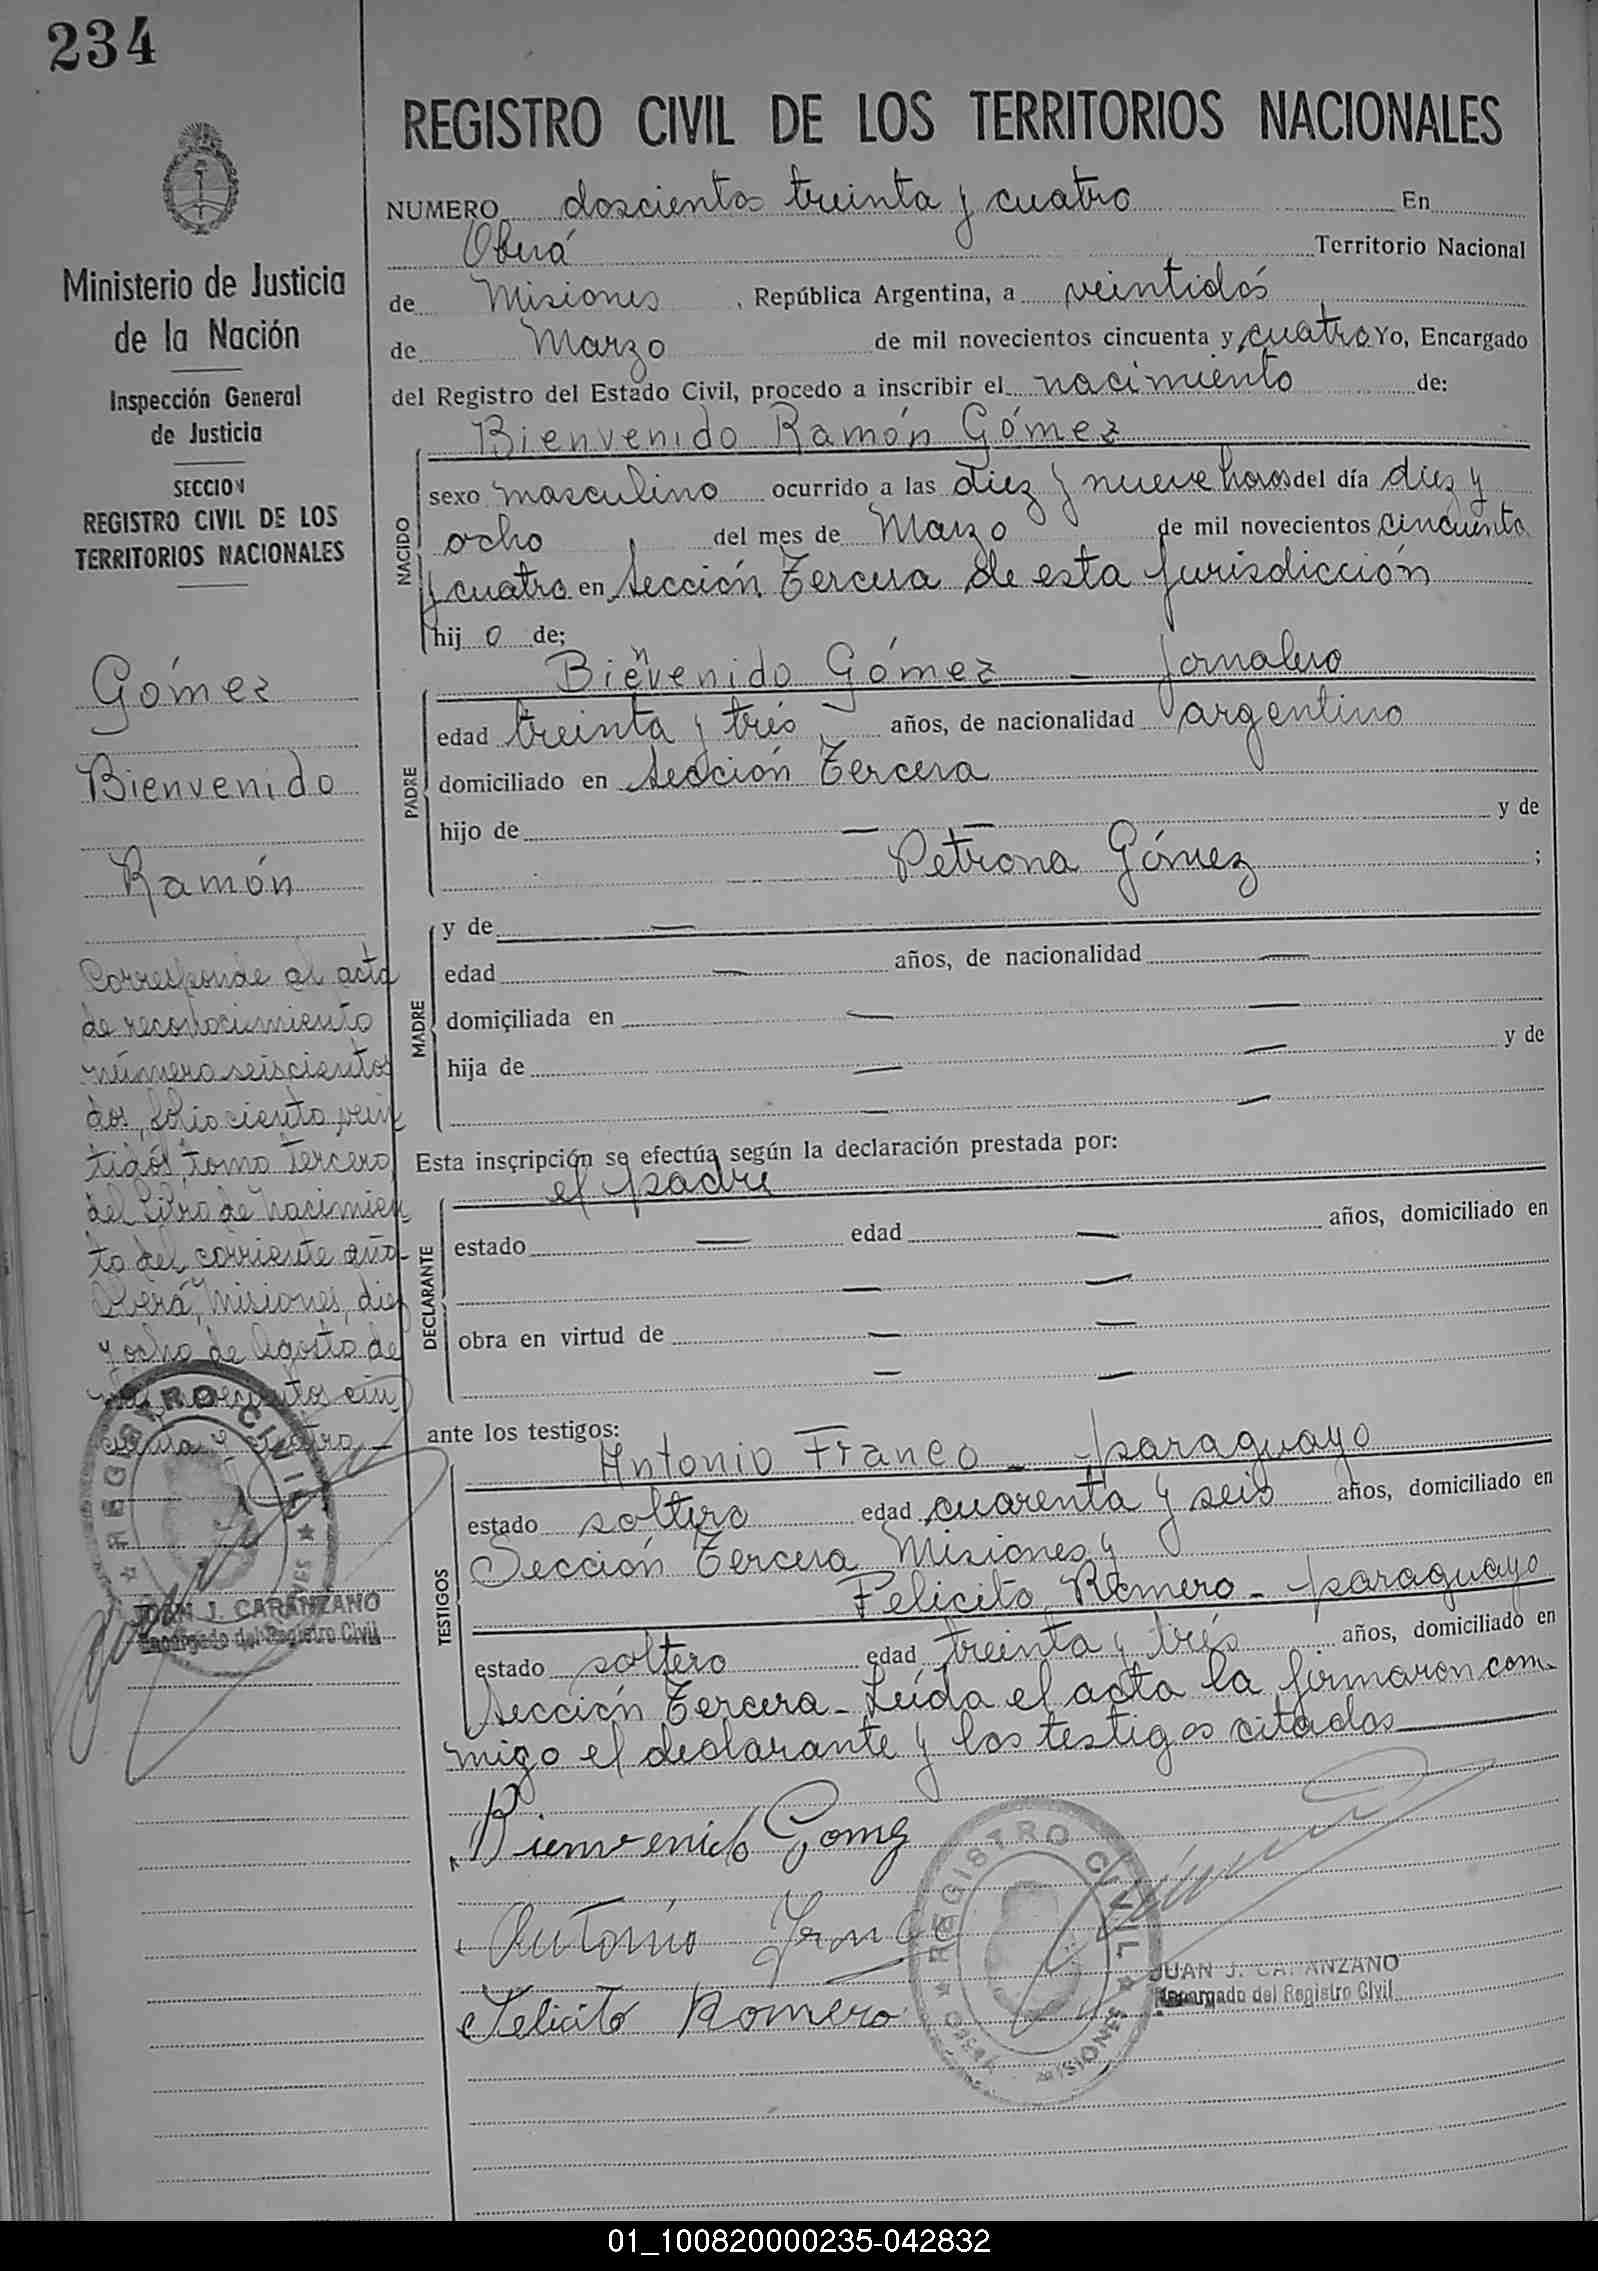 234
REGISTRO CIVIL DE LOS TERRITORIOS NACIONALES
NUMERO doscientos treinta y cuatro En
Oberá Territorio Nacional
de Misiones, República Argentina, a veintidós
de Marzo de mil novecientos cincuenta y cuatro Yo, Encargado
del Registro del Estado Civil, procedo a inscribir el nacimiento de:
Bienvenido Ramón Gómez
NACIDO
sexo masculino ocurrido a las diez y nueve horas del día diez y
ocho del mes de Marzo de mil novecientos cincuenta
y cuatro en Sección Tercera de esta jurisdicción
hijo de;
Bienvenido Gómez - jornalero
PADRE
edad treinta y trés años, de nacionalidad argentino
domiciliado en Sección Tercera
hijo de — — y de
Petrona Gómez ;
MADRE
y de —
edad — años, de nacionalidad —
domiciliada en — —
hija de — — y de
— —
Esta inscripción se efectúa según la declaración prestada por:
el padre
DECLARANTE
estado — edad — años, domiciliado en
— —
obra en virtud de — —
— —
ante los testigos:
Antonio Franco - paraguayo
TESTIGOS
estado soltero edad cuarenta y seis años, domiciliado en
Sección Tercera Misiones y
Felicito Romero - paraguayo
estado soltero edad treinta y trés años, domiciliado en
Sección Tercera - Leída el acta la firmaron con-
migo el declarante y los testigos citados
Bienvenido Gomez
Antonio
Felicito Romero
REGISTRO CIVIL
OBERÁ MISIONES
JUAN J. CARANZANO
Encargado del Registro Civil
Ministerio de Justicia
de la Nación
Inspección General
de Justicia
SECCION
REGISTRO CIVIL DE LOS
TERRITORIOS NACIONALES
Gómez
Bienvenido
Ramón
Corresponde al acta
de reconocimiento
número seiscientos
dos, folio ciento vein
tidós, tomo tercero
del Libro de nacimien
to del corriente año-
Oberá, Misiones, diez
y ocho de Agosto de
mil novecientos cin
cuenta y cuatro -
REGISTRO CIVIL
MISIONES
JUAN J. CARANZANO
Encargado del Registro Civil
01_100820000235-042832